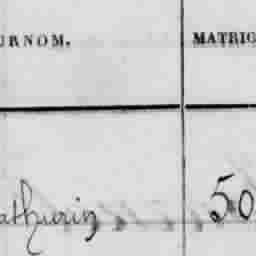 URNOM. MATRIC
athurin 50